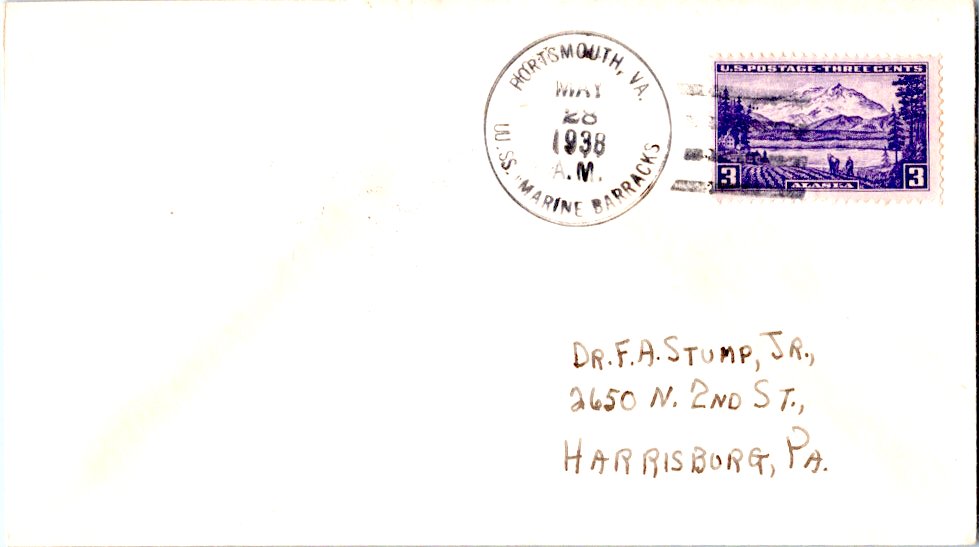 PORTSMOUTH, VA.
MAY
28
1938
A.M.
U.SS. MARINE BARRACKS
U.S.POSTAGE-THREE CENTS
3 ALASKA 3
DR. F.A. STUMP, JR.,
2650 N. 2ND ST.,
HARRISBURG, PA.